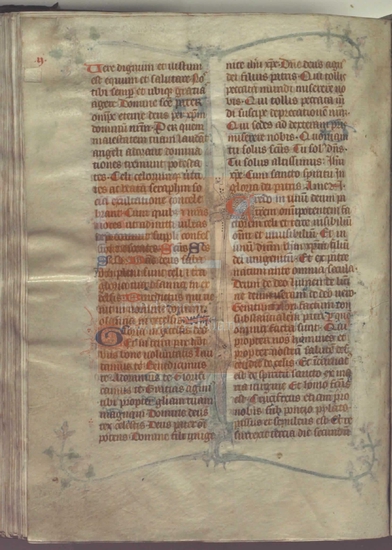 Vere dignum et iustum
est equum et salutare No
bis semper et ubique gratias
agere Domine sancte pater
omnipotens eterne deus per xpm
dominum nostrum Per quem
maiestatem tuam laudant
angeli adorant domina
tiones tremunt potesta
tes Celi celorumque virtu
tes ac beata seraphim so
cia exultatione
brant Cum quibus et nostras
voces ut admitti iubeas
supplici confes
sione dicentes Sanctus Sanctus
Sanctus dominus deus saba
oth pleni sunt celi et terra
gloria tua osanna in ex
celsis Benedictus qui ve
nit in nomine domini
osanna in excelsis
Gloria in excelsis deo
Et in terra pax ho
minibus bone voluntatis Lau
damus te Benedicimus
te Adoramus te Glorifi
camus te Gratias agim
tibi propter gloriam tuam
magnam Domine deus
rex celestis Deus pater om
potens Domine fili unige
nite ihu xpe Dne deus agn
dei filius patris Qui tollis
peccata mundi miserere no
bis Qui tollis peccata mundi
suscipe deprecationem nostram
Qui sedes ad dexteram patris
miserere nobis Quoniam
tu solus sanctus Tu solus dominus
Tu solus altissimus Ihu
xpe Cum sancto spiritu in
gloria dei patris Amen
Credo in unum deum pa
trem omnipotentem fa
ctorem celi et terre visibilium
omnium et invisibilium Et in
unum dominum ihm xpm filium
dei unigenitum Et ex patre
natum ante omnia secula
Deum de deo lumen de lumi
ne deum verum de deo vero
Genitum non factum con
substantialem patri per quem
omnia facta sunt Qui
propter nos homines et
propter nostram salutem des
cendit de celis Et incarnat
est de spiritu sancto ex ma
ria virgine Et homo factus
est Crucifixus etiam pro
nobis sub poncio pylato
passus et sepultus est Et re
surrexit tercia die secundum